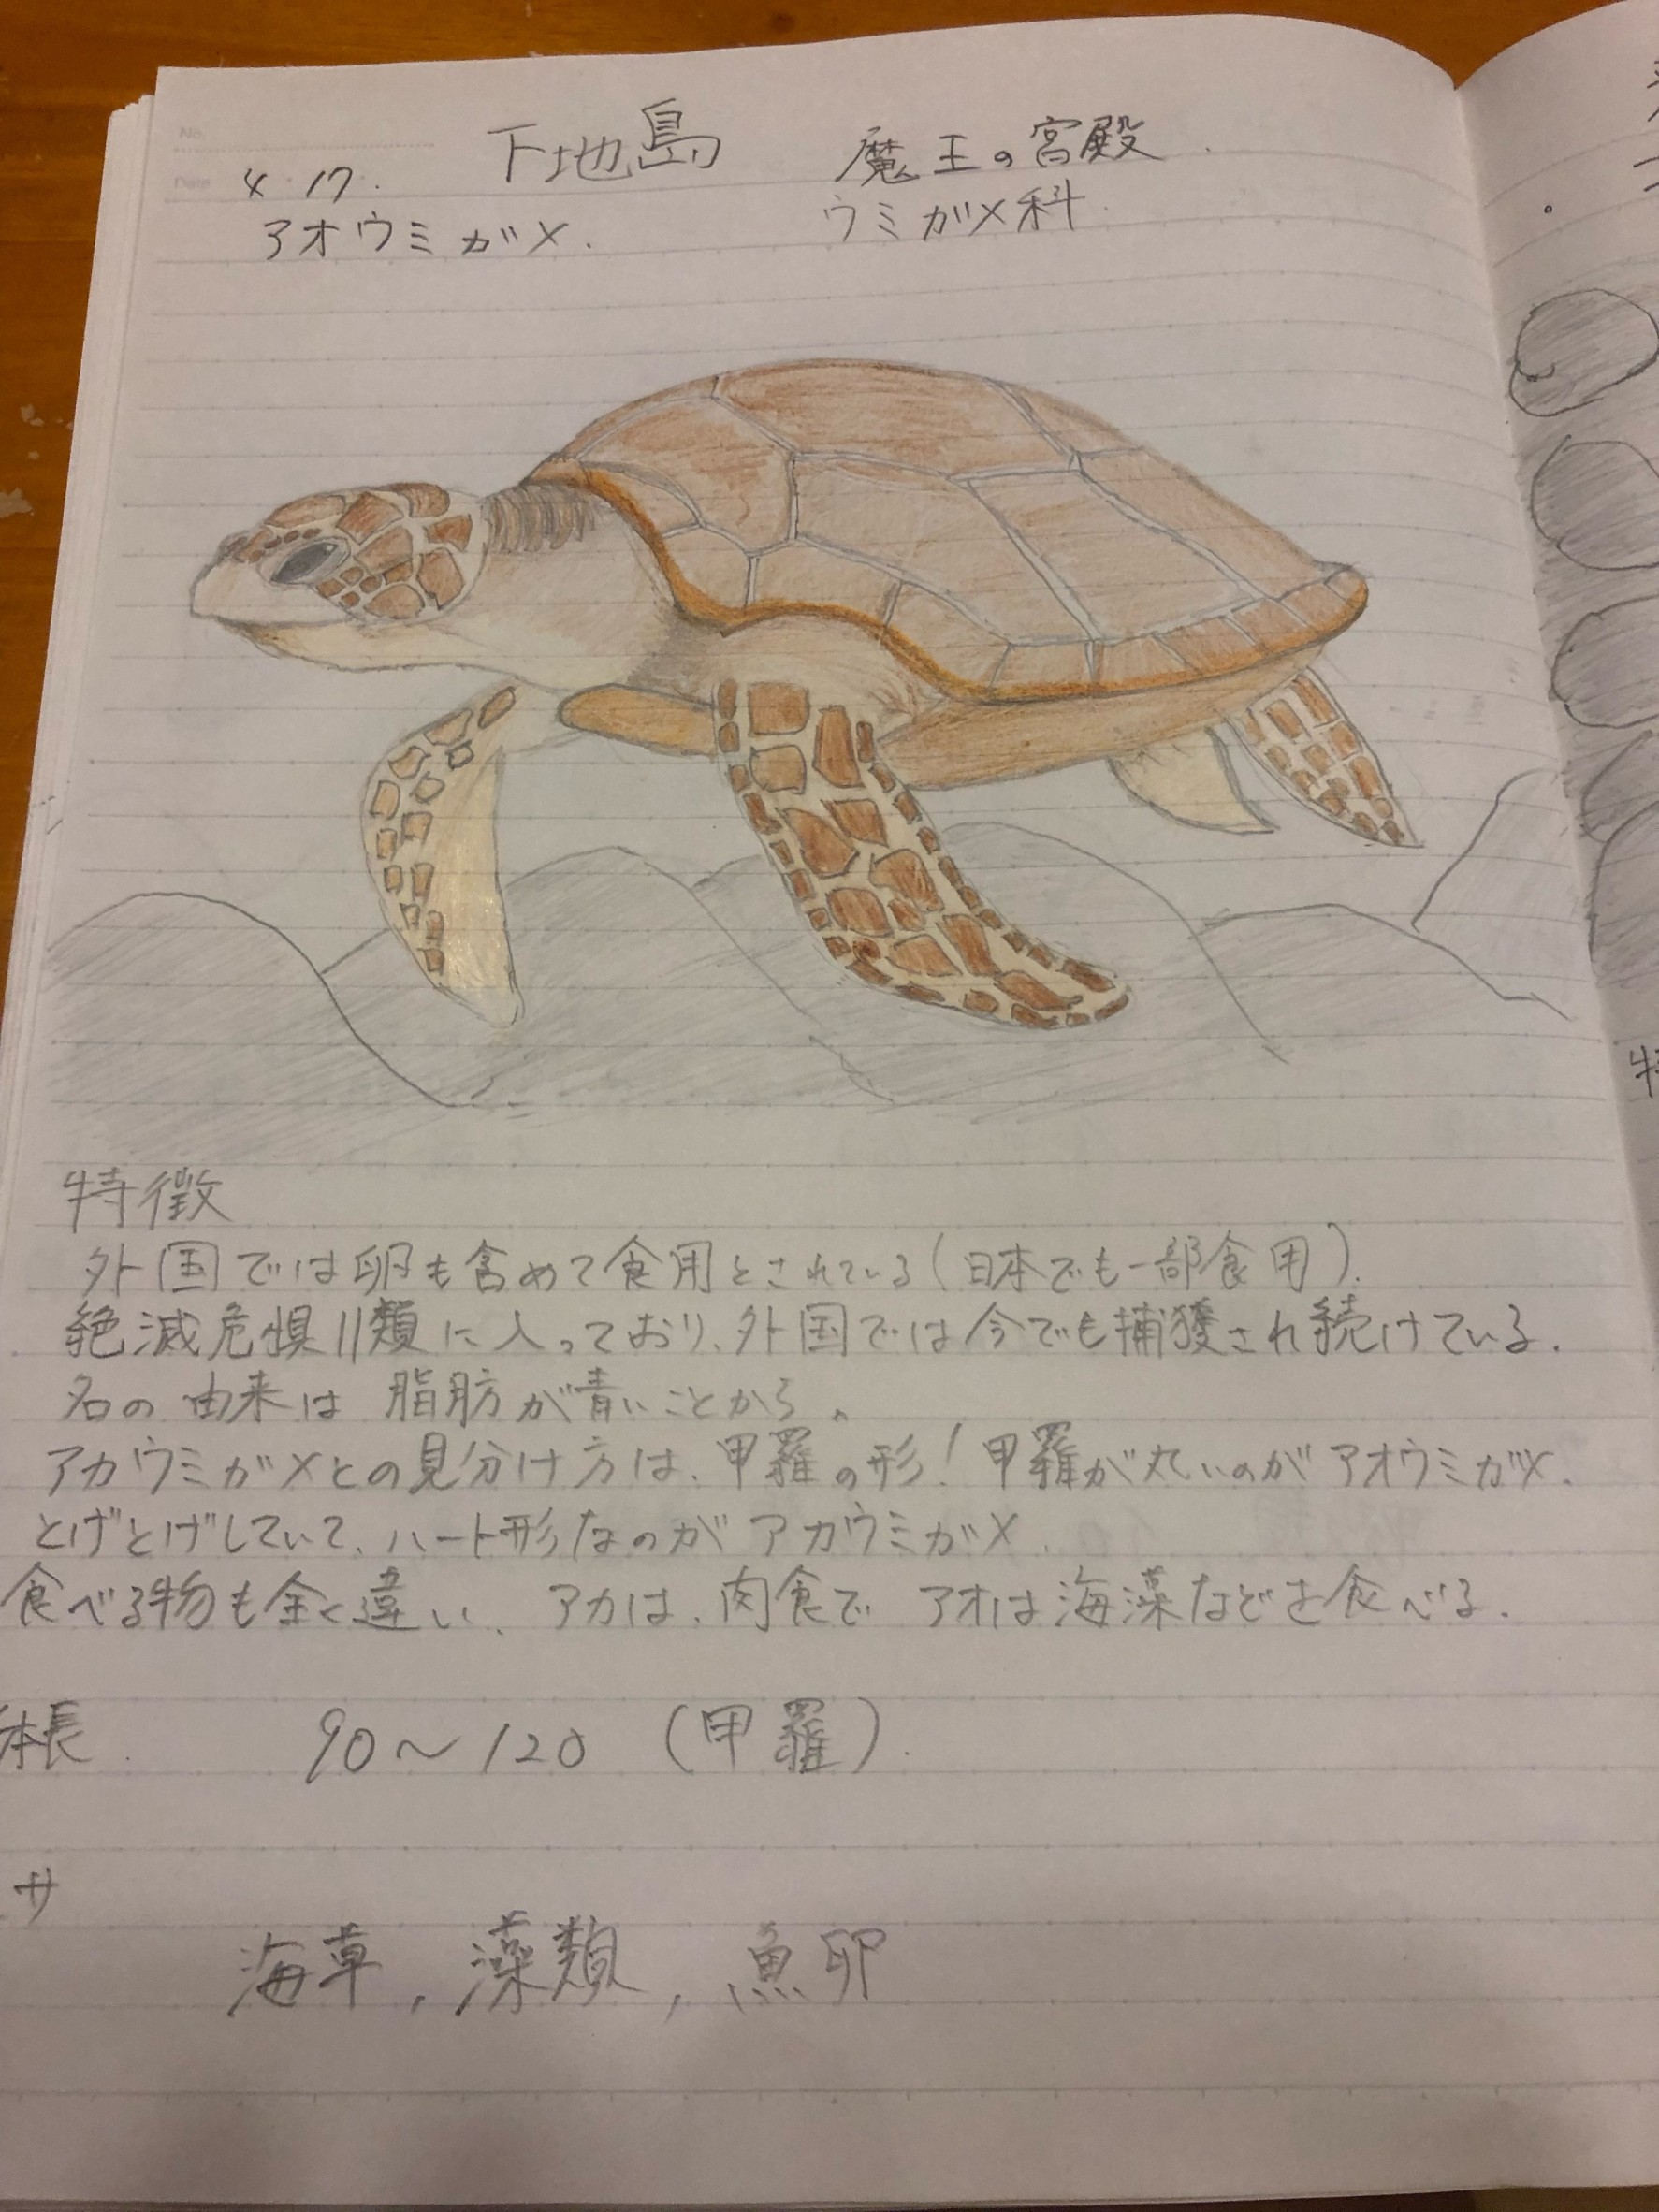 No.
Date
4 17. 下地島 魔王の宮殿.
アオウミガメ. ウミガメ科.
特徴
外国では卵も含めて食用とされている(日本でも一部食用).
絶滅危惧II類に入っており、外国では今でも捕獲され続けている.
名の由来は脂肪が青いことから。
アカウミガメとの見分け方は、甲羅の形!甲羅が丸いのがアオウミガメ.
とげとげしていて、ハート形なのがアカウミガメ.
食べる物も全く違い、アカは、肉食でアオは海藻などを食べる.
体長. 90〜120 (甲羅).
サ
海草, 藻類, 魚卵
特